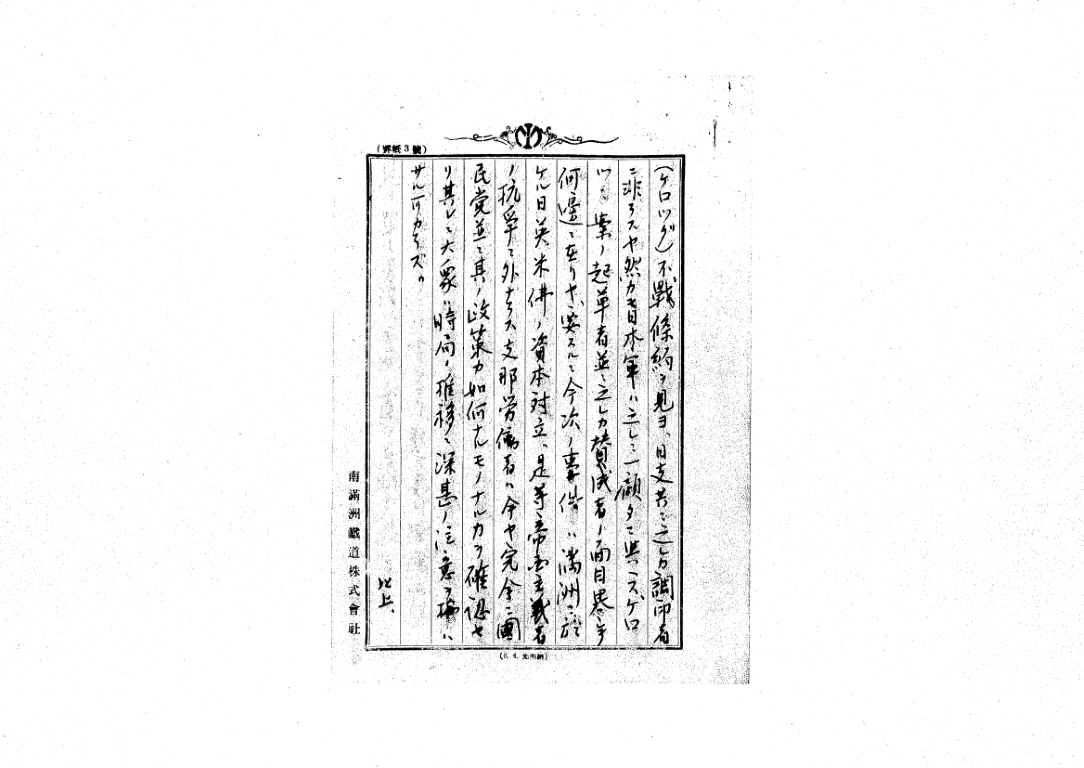 (罫紙3號)
(ケロツグ)不戰條約ヲ見ヨ、日支共ニ之レカ調印者
ニ非ラスヤ然カモ日本軍ハ之レニ一顧タニ與ヘズケロ
ツグ案ノ起草者並ニ之レカ賛成者ノ面目果シテ
何邊ニ在リヤ、要スルニ今次ノ事件ハ滿洲ニ於
ケル日英米佛ノ資本対立、是等帝国主義者
ノ抗爭ニ外ナラス支那労働者ハ今ヤ完全ニ國
民党並ニ其ノ政策カ如何ナルモノナルカヲ確認セ
リ其レニ大衆ハ時局ノ推移ニ深甚ノ注意ヲ拂ハ
サルヘカラズ。
以上、
南滿洲鐵道株式會社